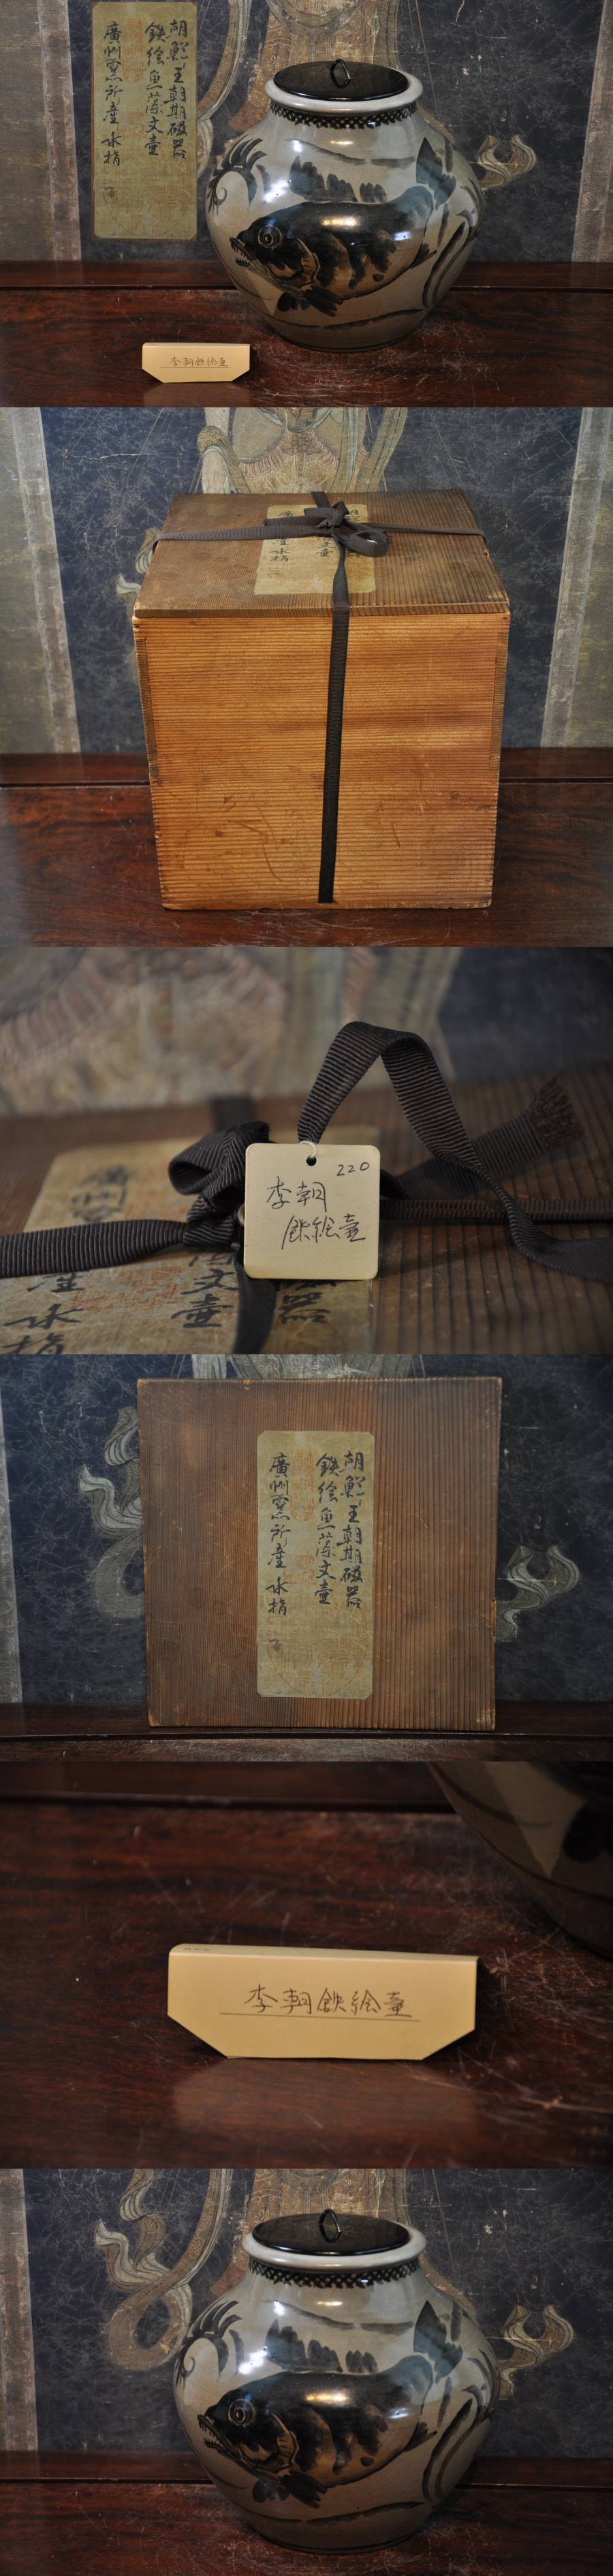 朝鮮王朝期磁器
鉄絵魚藻文壷
廣州窯所産 水指
李朝鉄絵壷
220
李朝
鉄絵壷
朝鮮王朝期磁器
鉄絵魚藻文壷
廣州窯所産 水指
李朝鉄絵壷